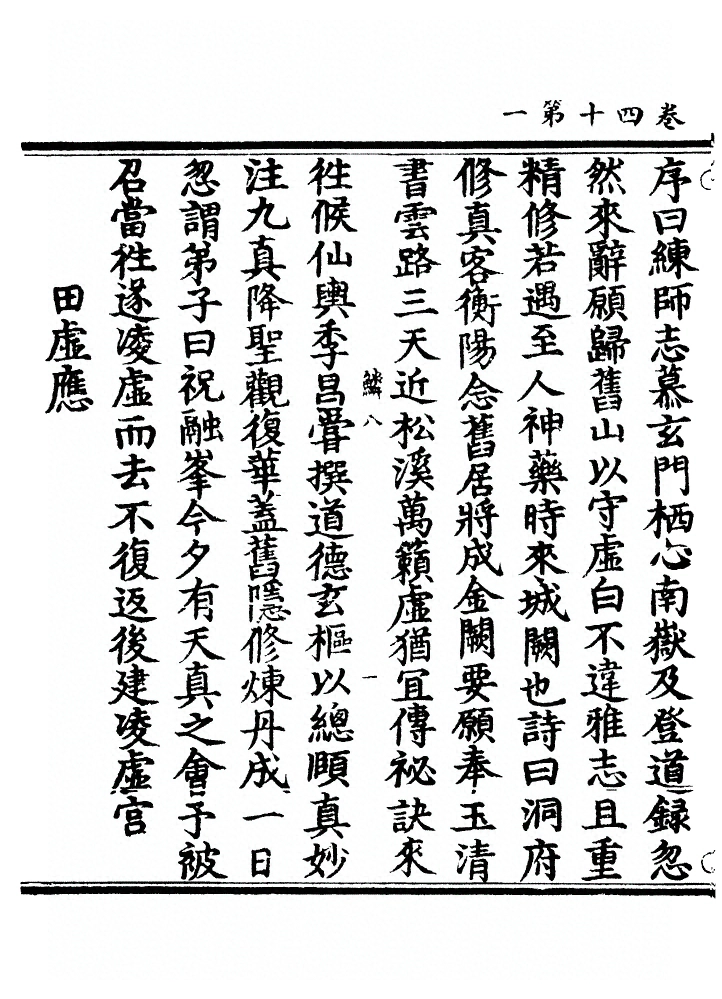 卷四十第一
序曰練師志慕玄門栖心南嶽及登道録忽
然來辭願歸舊山以守虛白不違雅志且重
精修若遇至人神藥時來城闕也詩曰洞府
修真客衡陽念舊居將成金闕要願奉玉清
書雲路三天近松溪萬籟虛猶宜傳祕訣來
鱗八 一
徃候仙輿季昌甞撰道德玄樞以總頤真妙
注九真降聖觀復華蓋舊隱修煉丹成一日
忽謂弟子曰祝融峯今夕有天真之會予被
召當徃遂凌虛而去不復返後建凌虛宫
田虛應